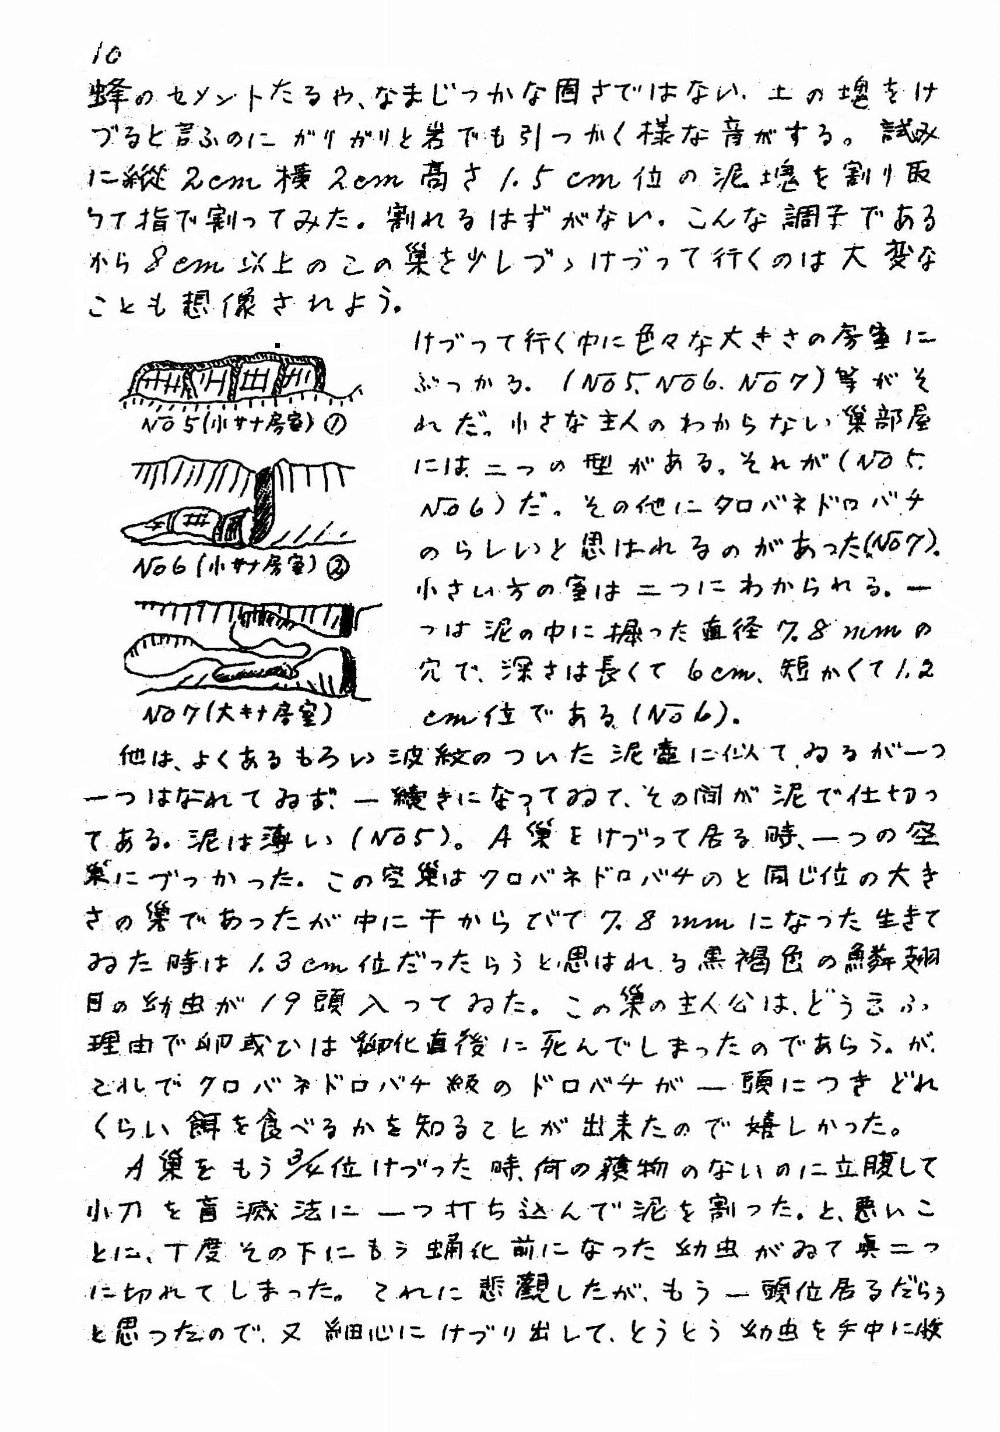 10
蜂のセメントたるや、なまじつかな固さではない、土の塊をけ
づると言ふのにガリガリと岩でも引つかく様な音がする。試み
に縱2cm横2cm高さ1.5cm位の泥塊を割り取
つて指で割ってみた。割れるはずがない。こんな調子である
から8cm以上のこの巣を少しづゝけづって行くのは大変な
ことも想像されよう。
けづって行く中に色々な大きさの房室に
ぶっかる。(No5、No6、No7)等がそ
れだ。小さな主人のわからない巣部屋
には、二つの型がある。それが(No5、
No6)だ。その他にクロバネドロバチ
のらしいと思はれるのがあった(No7)。
小さい方の室は二つにわかられる。一
つは泥の中に掘った直径7.8mmの
穴で、深さは長くて6cm、短かくて1.2
cm位である(No6)。
No5(小サナ房室)①
No6(小サナ房室)②
No7(大キナ房室)
他は、よくあるもろい波紋のついた泥壷に似てゐるが一つ
一つはなれてゐず、一續きになってゐて、その間が泥で仕切っ
てある。泥は薄い(No5)。A巣をけづって居る時、一つの空
巣にづっかった。この空巣はクロバネドロバチのと同じ位の大き
さの巣であったが中に干からびて7.8mmになった生きて
ゐた時は1.3cm位だったらうと思はれる黒褐色の鱗翅
目の幼虫が19頭入ってゐた。この巣の主人公は、どう言ふ
理由で卵或ひは孵化直後に死んでしまったのであらう。が、
これでクロバネドロバチ級のドロバチが一頭につきどれ
くらい餌を食べるかを知ることが出来たので嬉しかった。
A巣をもう3/4位けづった時、何の獲物のないのに立腹して
小刀を盲滅法に一つ打ち込んで泥を割った。と、悪いこ
とに、丁度その下にもう蛹化前になった幼虫がゐて真二つ
に切れてしまった。これに悲觀したが、もう一頭位居るだらう
と思つたので、又細心にけづり出して、とうとう幼虫を手中に收